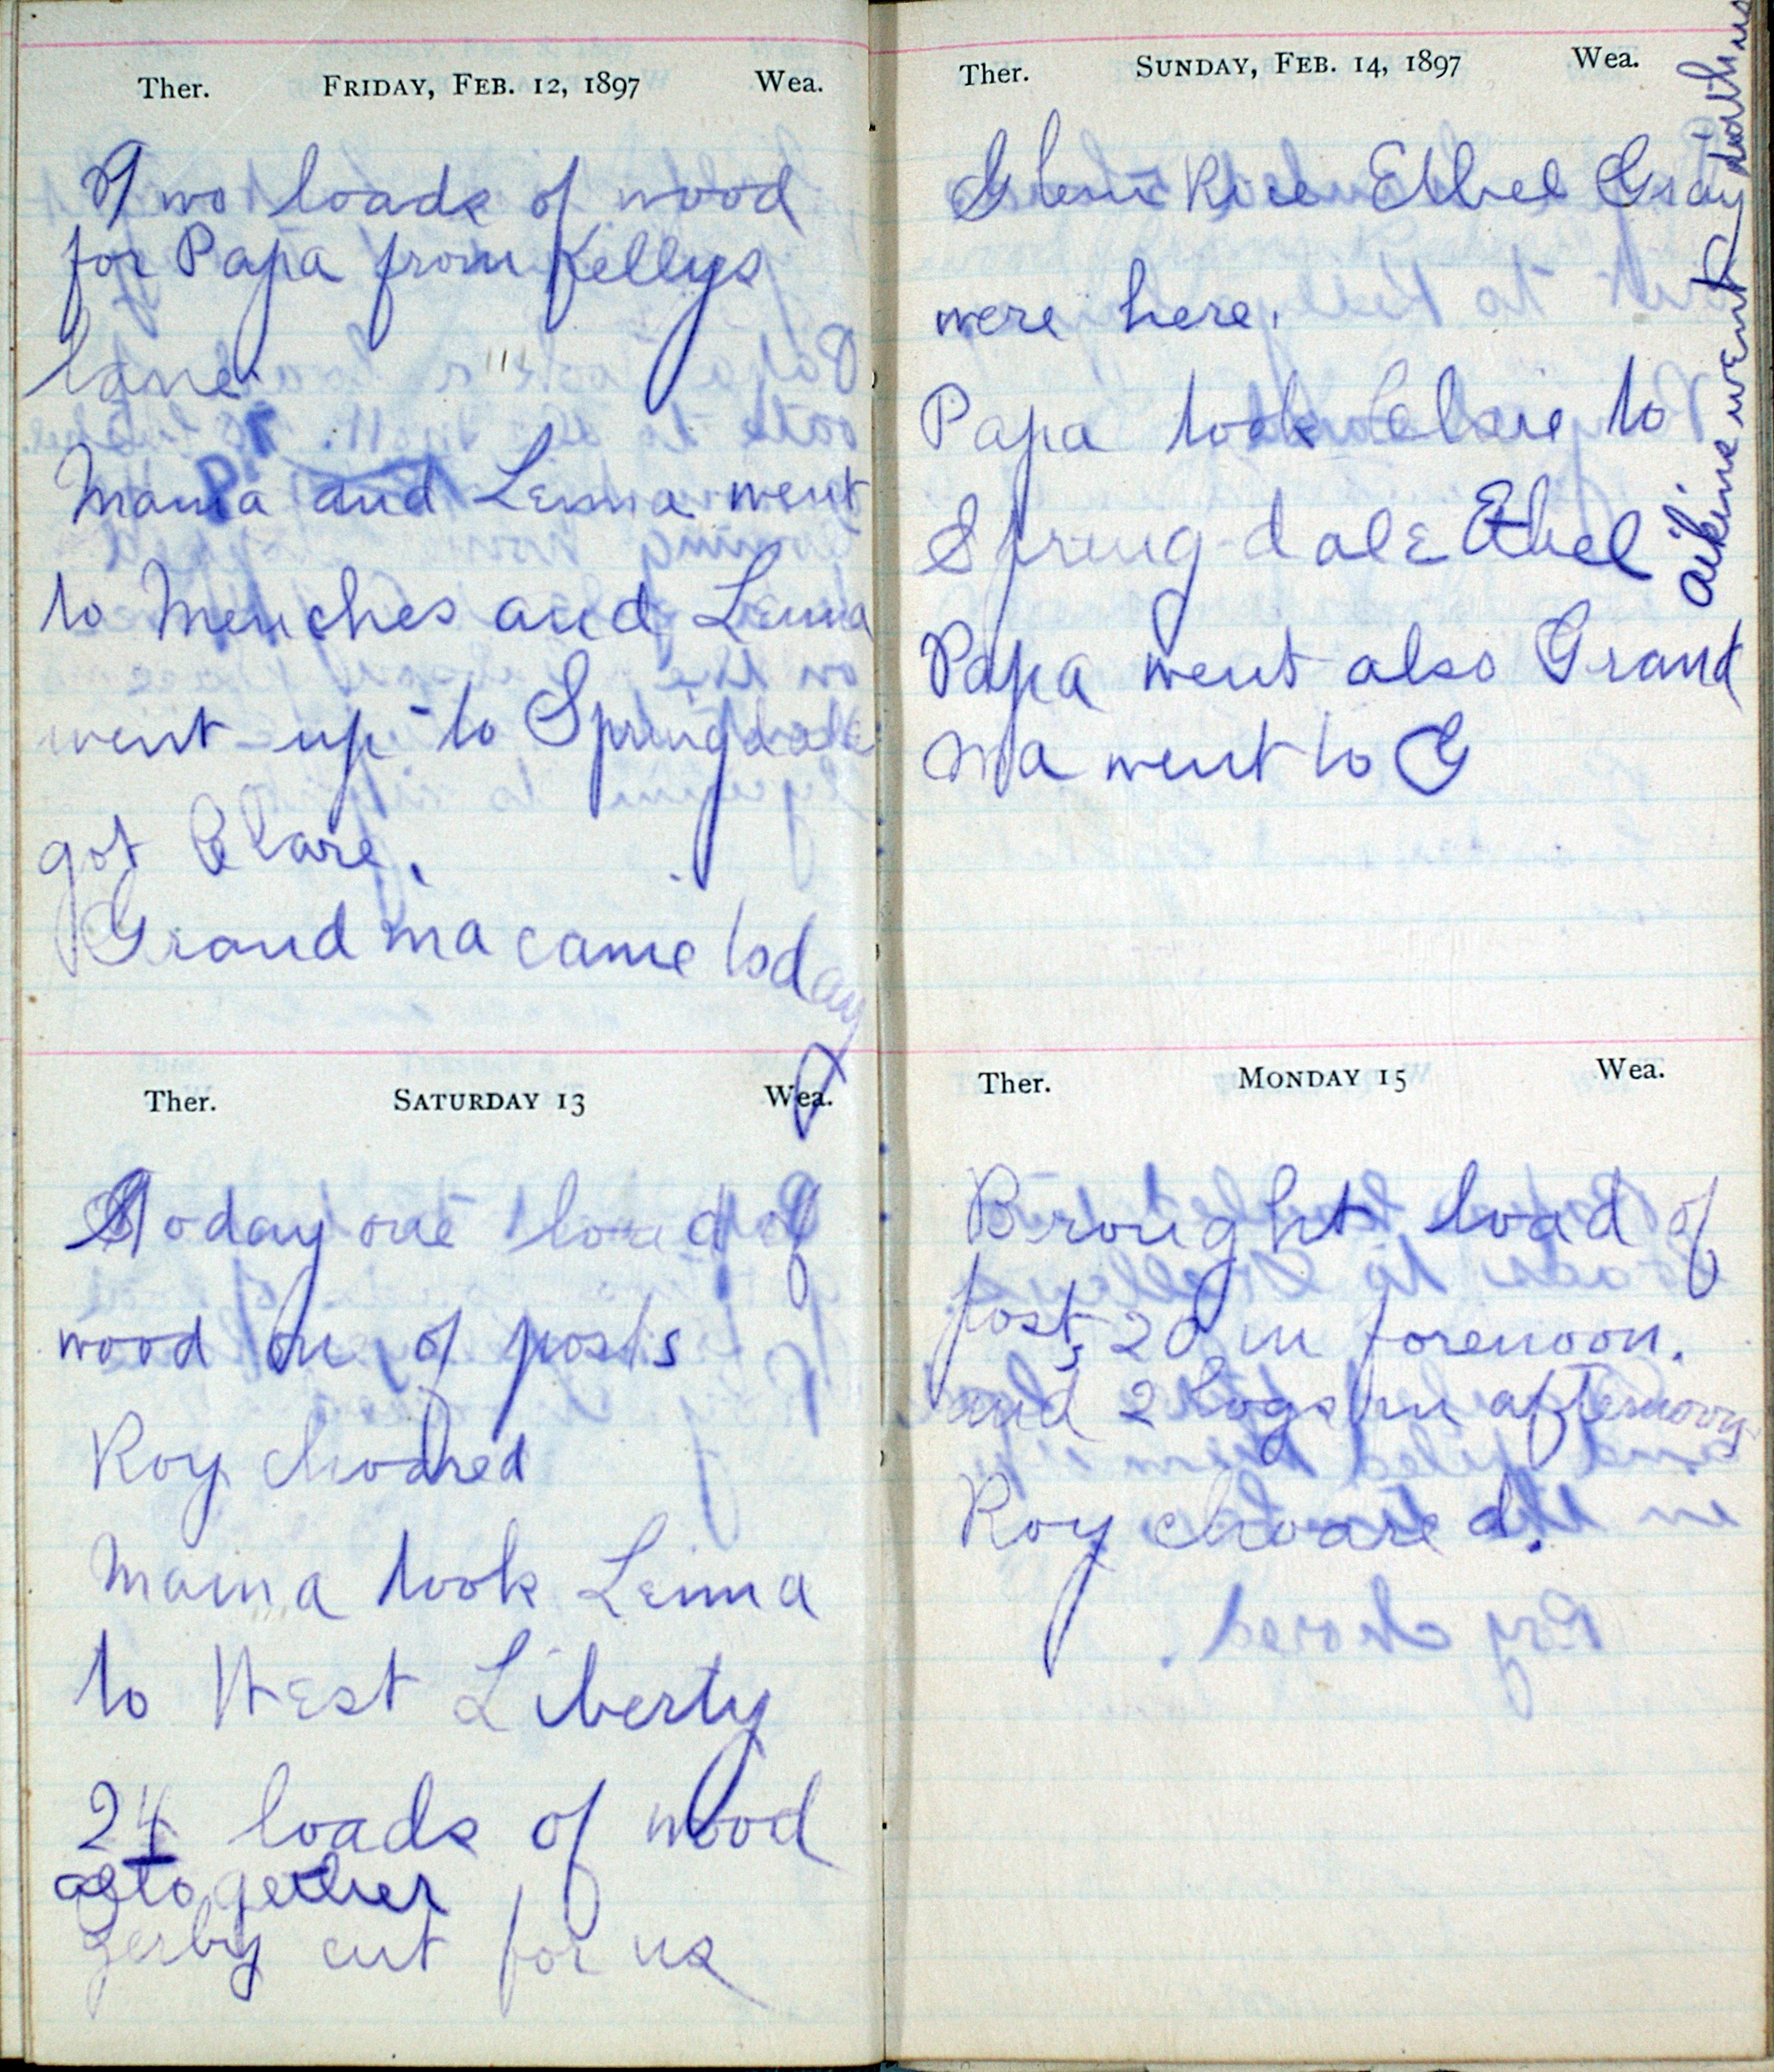 Ther. FRIDAY, FEB. 12, 1897 Wea.
Two loads of wood
for Papa from Kellys
lane.
Mama and Lenna went
to Menches and Lenna
went up to Springdale
got Clare.
Grand ma came today
Ther. SATURDAY 13 Wea.
Today one load of
wood on of posts
Roy chored
Mama took Lenna
to West Liberty
24 loads of wood
altogether
Zerby cut for us
Ther. SUNDAY, FEB. 14, 1897 Wea.
Glenn Rice Ethel Gray
were here.
Papa took Clare to
Spring-dale Ethel
Papa went also Grand
ma went to G
went
Ther. MONDAY 15 Wea.
Brought load of
post, 20 in forenoon.
and 2 logs in afternoon
Roy choared.